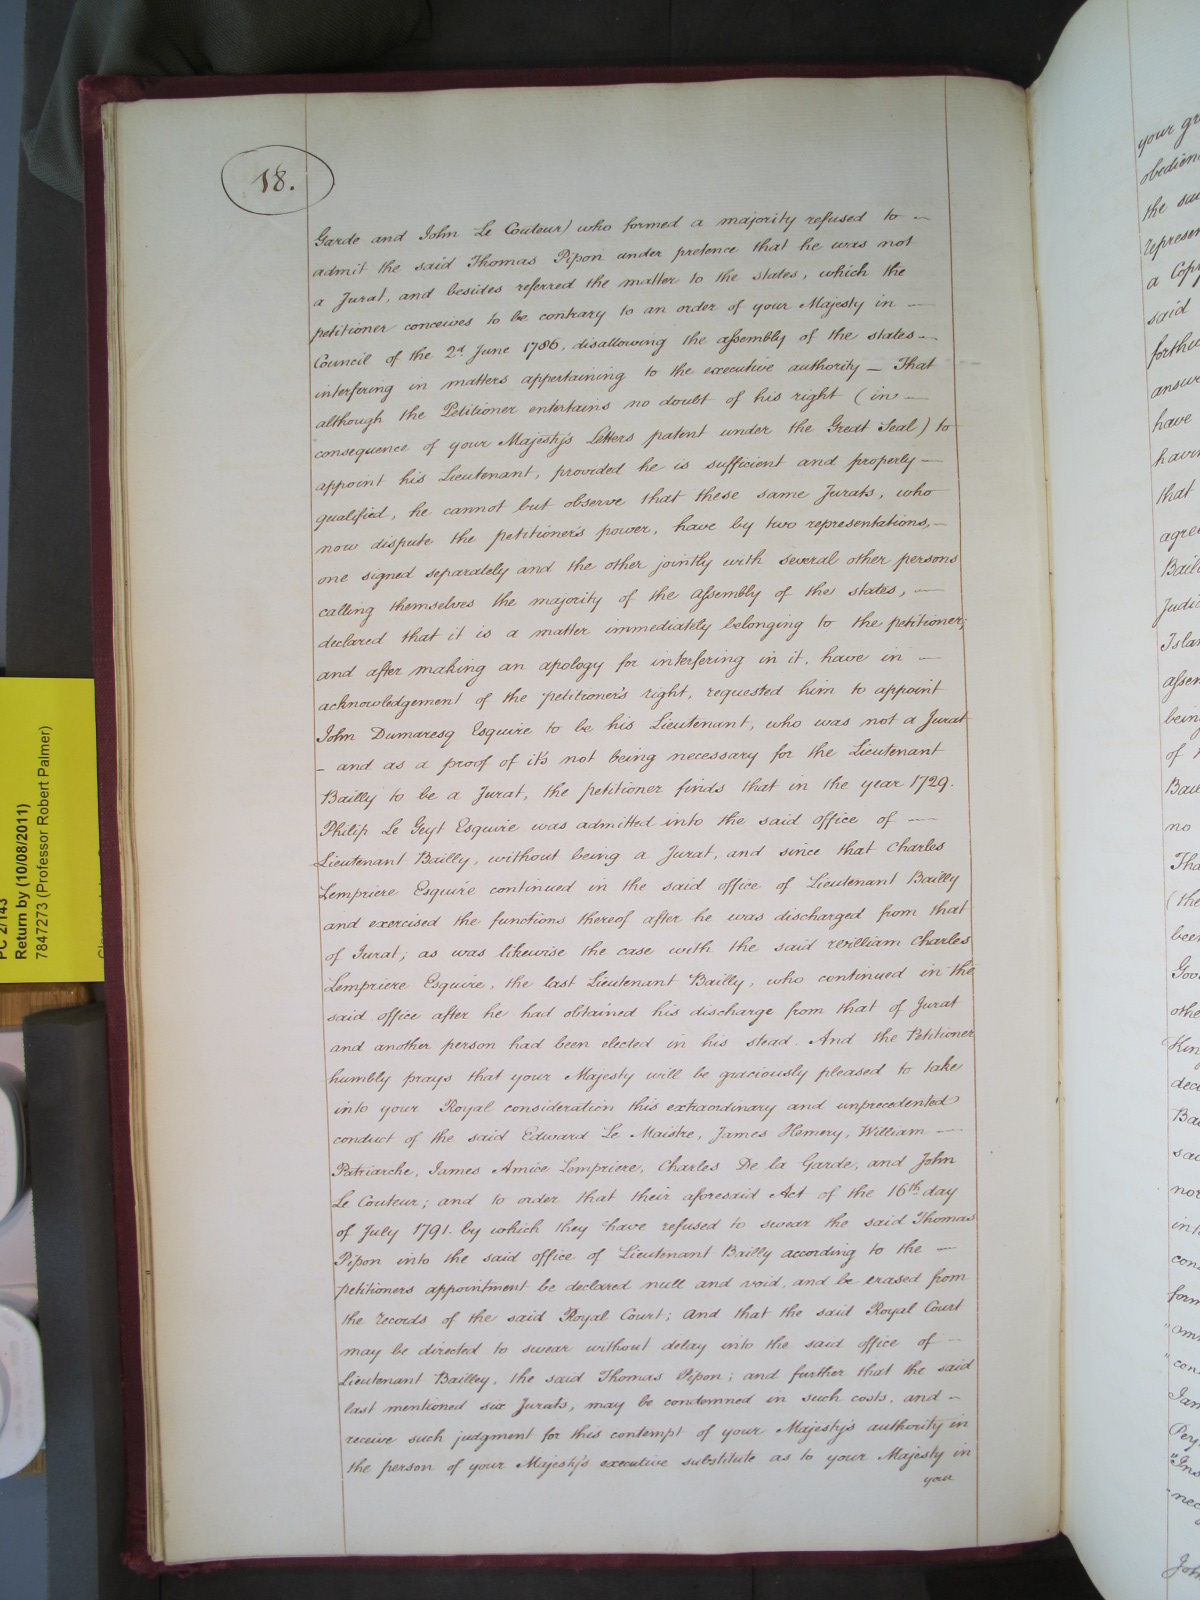 18.
Garde and John Le Couteur) who formed a majority refused to —
admit the said Thomas Pipon under pretence that he was not
a Jurat, and besides referred the matter to the states, which the
petitioner conceives to be contrary to an order of your Majesty in —
Council of the 2d June 1786, disallowing the assembly of the states —
interfering in matters appertaining to the executive authority — That
although the Petitioner entertains no doubt of his right (in —
consequence of your Majesty's Letters patent under the Great Seal) to
appoint his Lieutenant, provided he is sufficient and properly —
qualified, he cannot but observe that these same Jurats, who
now dispute the petitioner's power, have by two representations, —
one signed separately and the other jointly with several other persons
calling themselves the majority of the assembly of the states, —
declared that it is a matter immediately belonging to the petitioner;
and after making an apology for interfering in it, have in —
acknowledgement of the petitioner's right, requested him to appoint
John Dumaresq Esquire to be his Lieutenant, who was not a Jurat
— and as a proof of it's not being necessary for the Lieutenant
Bailly to be a Jurat, the petitioner finds that in the year 1729.
Philip Le Geyt Esquire was admitted into the said office of —
Lieutenant Bailly, without being a Jurat, and since that Charles
Lempriere Esquire continued in the said office of Lieutenant Bailly
and exercised the functions thereof after he was discharged from that
of Jurat; as was likewise the case with the said William Charles
Lempriere Esquire, the last Lieutenant Bailly, who continued in the
said office after he had obtained his discharge from that of Jurat
and another person had been elected in his stead. And the Petitioner
humbly prays that your Majesty will be graciously pleased to take
into your Royal consideration this extraordinary and unprecedented
conduct of the said Edward Le Maistre, James Hemery, William —
Patriarche, James Amice Lempriere, Charles De la Garde, and John
Le Couteur; and to order that their aforesaid Act of the 16th day
of July 1791. by which they have refused to swear the said Thomas
Pipon into the said office of Lieutenant Bailly according to the —
petitioners appointment be declared null and void, and be erased from
the records of the said Royal Court; And that the said Royal Court
may be directed to swear without delay into the said office of —
Lieutenant Bailley, the said Thomas Pipon; and further that the said
last mentioned six Jurats, may be condemned in such costs, and —
receive such judgment for this contempt of your Majesty's authority in
the person of your Majesty's executive substitute as to your Majesty in
your
PC 2/143
Return by (10/08/2011)
7847273 (Professor Robert Palmer)